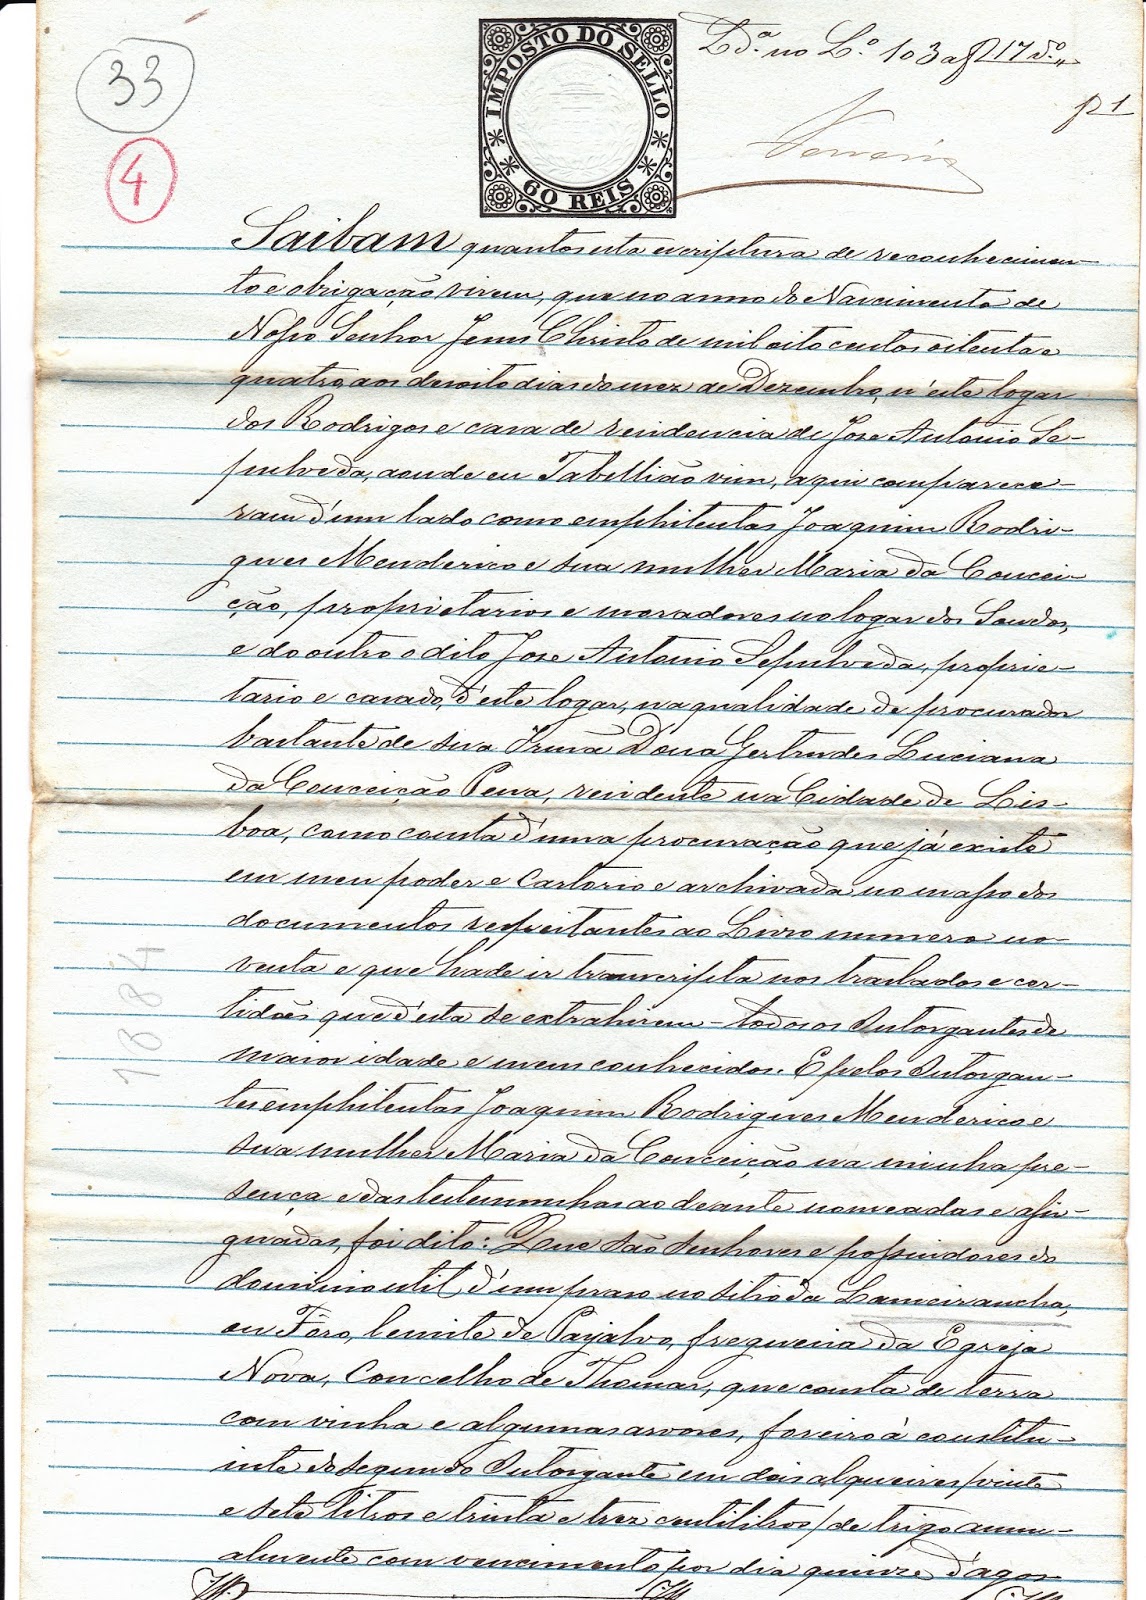 33
4
IMPOSTO DO SELLO
60 REIS
Ld.ª no L.º 103 a f 217 v.º
p 1
Ferreira
Saibam quantos esta escriptura de reconhecimen-
to e obrigação virem, que no anno do Nascimento de
Nosso Senhor Jesus Christo de mil oito centos oitenta e
quatro, aos desoito dias do mez de Dezembro, n'este logar
dos Rodrigos e casa de residencia de Jose Antonio Se-
pulveda, aonde eu Tabellião vim, aqui comparece-
ram d'um lado como emphiteutas Joaquim Rodri-
gues Menderico e sua mulher Maria da Concei-
ção, proprietarios e moradores no logar dos Soudos,
e do outro o dito Jose Antonio Sepulveda, proprie-
tario e casado, d'este logar, na qualidade de procurador
bastante de sua Irmã Dona Gertrudes Luciana
da Conceição Pena, residente na Cidade de Lis-
boa, como consta d'uma procuração que já existe
em meu poder e Cartorio e archivada no masso dos
documentos respeitantes ao Livro numero no-
venta e que hade ir transcripta nos traslados e cer-
tidões que d'esta se extrahirem - todos os Outorgantes de
maior idade e meus conhecidos. E pelos Outorgan-
tes emphiteutas Joaquim Rodrigues Menderico e
sua mulher Maria da Conceição na minha pre-
sença e das testemunhas ao deante nomeadas e assi-
gnadas, foi dito: Que são senhores e possuidores do
dominio util d'um praso no sitio da Lameirancha,
ou Foro, lemite de Payalvo, freguezia da Egreja
Nova, Concelho de Thomar, que consta de terra
com vinha e algumas arvores, foreiro á constitu-
inte do segundo Outorgante em dois alqueires /vinte
e sete litros e trinta e trez centilitros/ de trigo annu-
almente com vencimento por dia quinze d'agos-
1884